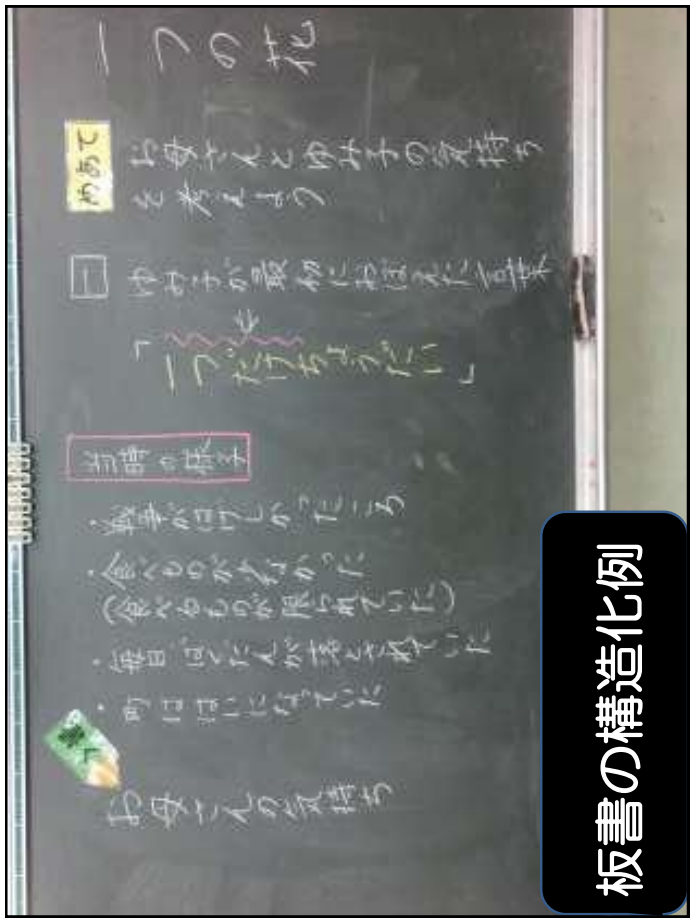 一つの花
めあて
お母さんとゆみ子の気持ち
を考えよう
一
ゆみ子が最初におぼえた言葉
⇓
「一つだけちょうだい」
当時の様子
・戦争がはげしかったころ
・食べものがなかった
(食べるものが限られていた)
・毎日ばくだんが落とされていた
・町ははいになっていた
書く
お母さんの気持ち
板書の構造化例